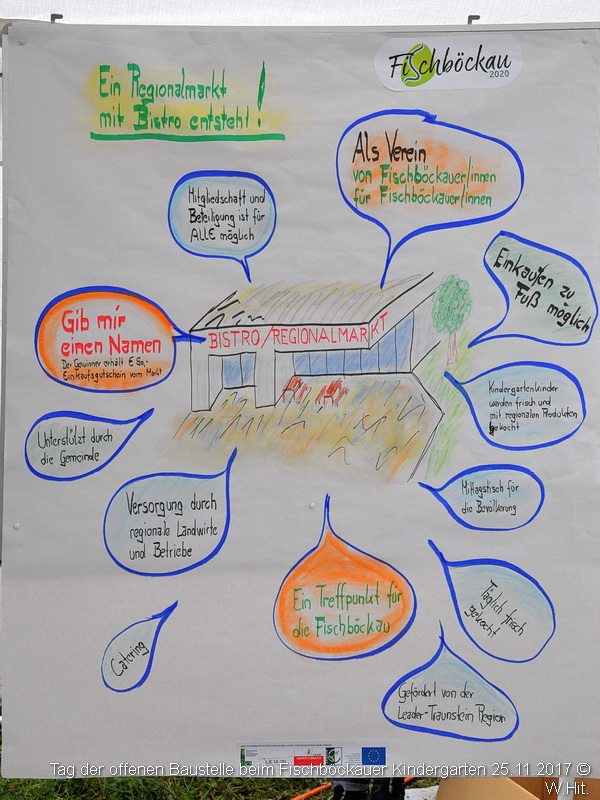 Fischböckau
2020
Ein Regionalmarkt
mit Bistro entsteht!
Als Verein
von Fischböckauer/innen
für Fischböckauer/innen
Mitgliedschaft und
Beteiligung ist für
ALLE möglich
Einkaufen zu
Fuß möglich
Gib mir
einen Namen
Der Gewinner erhält € 50,-
Einkaufsgutschein vom Markt
BISTRO/REGIONALMARKT
Kindergartenkinder
werden frisch und
mit regionalen Produkten
gekocht
Unterstützt durch
die Gemeinde
Versorgung durch
regionale Landwirte
und Betriebe
Mittagstisch für
die Bevölkerung
Ein Treffpunkt für
die Fischböckau
Täglich frisch
gekocht
Catering
Gefördert von der
Leader-Traunstein Region
LE 14-20
Tag der offenen Baustelle beim Fischböckauer Kindergarten 25.11.2017 ©
W.Hit.